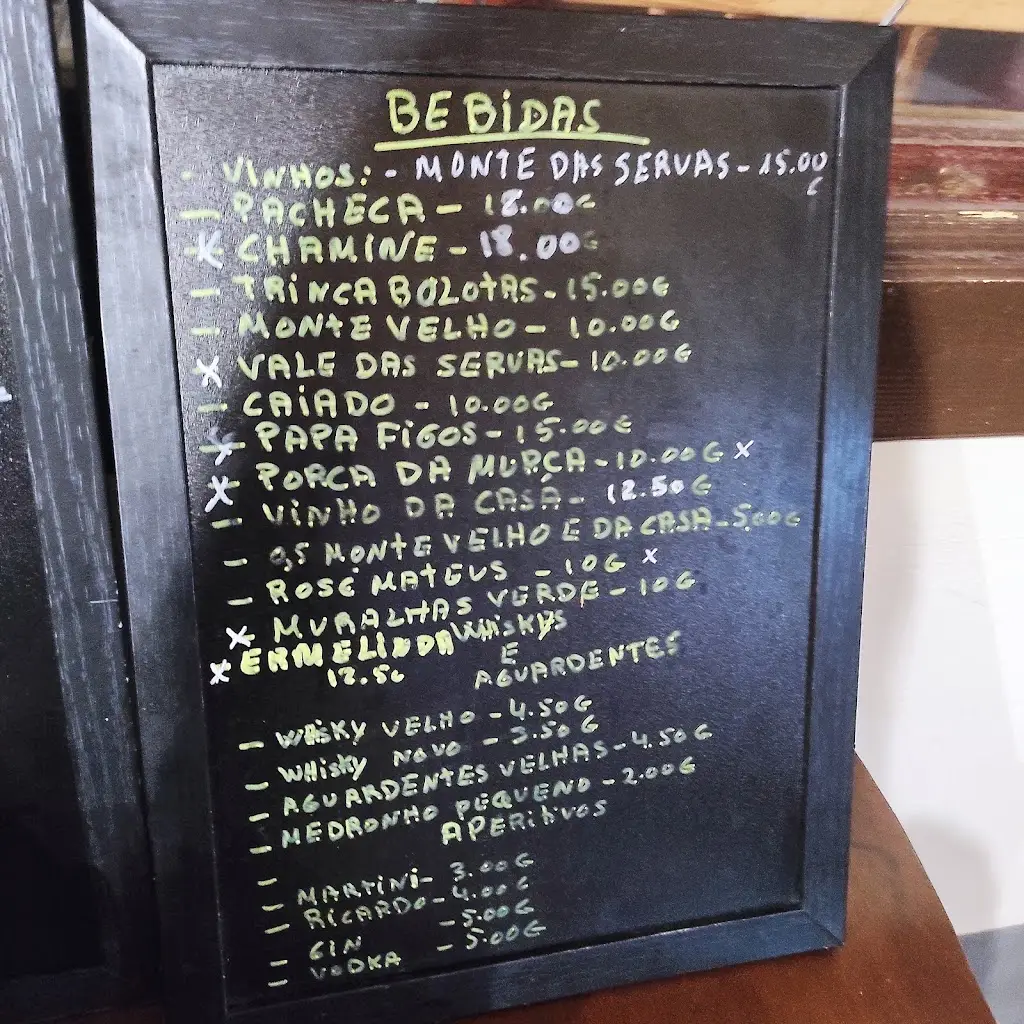 BEBIDAS
- VINHOS: - MONTE DAS SERVAS - 15.00 €
- PACHECA - 18.00€
x CHAMINE - 18.00€
- TRINCA BOLOTAS - 15.00€
- MONTE VELHO - 10.00€
x VALE DAS SERVAS - 10.00€
- CAIADO - 10.00€
x PAPA FIGOS - 15.00€
x PORCA DA MURCA - 10.00€ x
- VINHO DA CASA - 12.50€
- 0,5 MONTE VELHO E DA CASA - 5,00€
- ROSÉ MATEUS - 10€ x
x MURALHAS VERDE - 10€
x ERMELINDA
12.5€
WHISKYS
E
AGUARDENTES
- WHISKY VELHO - 4.50€
- WHISKY NOVO - 3.50€
- AGUARDENTES VELHAS - 4.50€
- MEDRONHO PEQUENO - 2.00€
APERITIVOS
-
- MARTINI - 3.00€
- RICARDO - 4.00€
- GIN - 5.00€
- VODKA - 5.00€